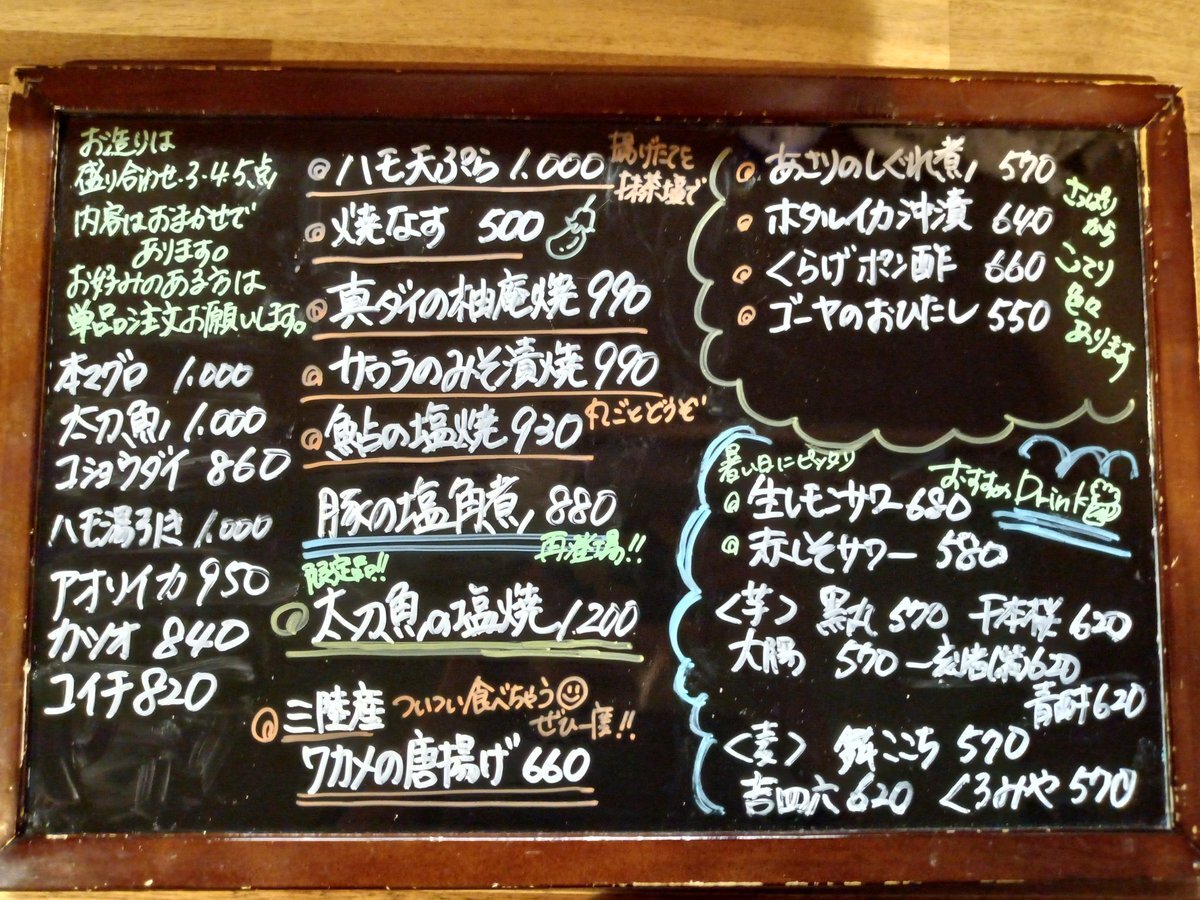 お造りは
盛り合わせ・3・4・5点
内容はおまかせで
あります。
お好みのある方は
単品注文お願いします。
本マグロ 1.000
太刀魚 1.000
コショウダイ 860
ハモ湯引き 1.000
アオリイカ 950
カツオ 840
コイチ 820
ハモ天ぷら 1.000
揚げたてを
抹茶塩で
焼なす 500
真ダイの柚庵焼 990
サワラのみそ漬焼 990
鮎の塩焼 930
丸ごとどうぞ
豚の塩角煮 880
再登場!!
限定品!!
太刀魚の塩焼 1.200
三陸産
ついつい食べちゃう
ぜひ一度!!
ワカメの唐揚げ 660
あさりのしぐれ煮 570
ホタルイカ沖漬 640
くらげポン酢 660
ゴーヤのおひたし 550
さっぱり
から
こってり
色々
あります
暑い日にピッタリ
おすすめ Drink
生レモンサワー 680
赤しそサワー 580
〈芋〉 黒丸 570 千本桜 620
570 620
620
〈麦〉 ここち 570
吉四六 620 くろみや 570